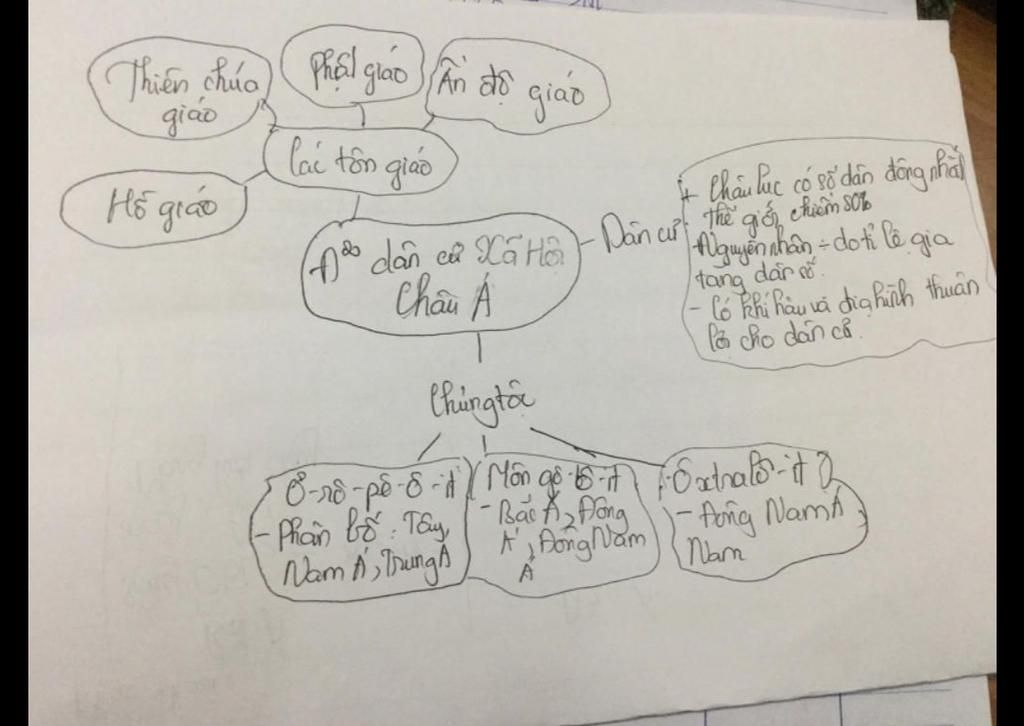 Thiên chúa
giáo
Phật giáo
Ấn độ giáo
Các tôn giáo
Hồ giáo
Đ²⁰ dân cư Xã Hội
Châu Á
Dân cư
+ Châu lục có số dân đông nhất
thế giới, chiếm 80%
Nguyên nhân ÷ do tỉ lệ gia
tăng dân số.
- Có khí hậu và địa hình thuận
lợi cho dân cư.
Chủng tộc
Ơ-rô-pê-ô-it
- Phân bố: Tây
Nam Á, Trung Á
Môn gô-lô-it
- Bắc Á, Đông
Á, Đông Nam
Á
Ôxtralô-it
- Đông Nam Á,
Nam